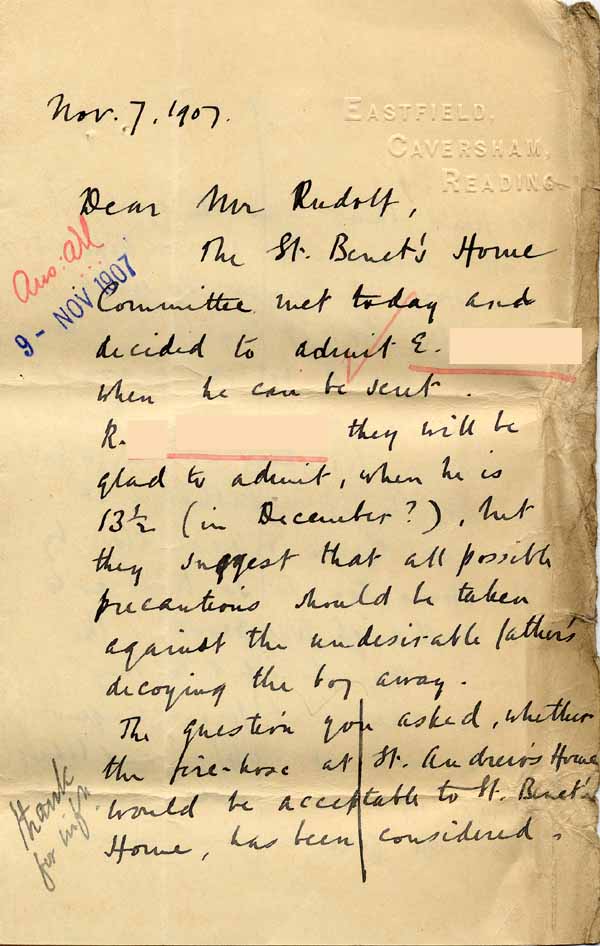 Nov. 7, 1907.
EASTFIELD,
CAVERSHAM,
READING
Dear Mr Rudolf,
The St. Benet's Home
Committee met today and
decided to admit E.
when he can be sent.
R.
they will be
glad to admit, when he is
13½ (in December?), but
they suggest that all possible
precautions should be taken
against the undesirable father's
decoying the boy away.
The question you asked, whether
the fire-hose at St. Andrew's Home
would be acceptable to St. Benet's
Home, has been considered.
Ans: all
9 - NOV 1907
thank
for infn